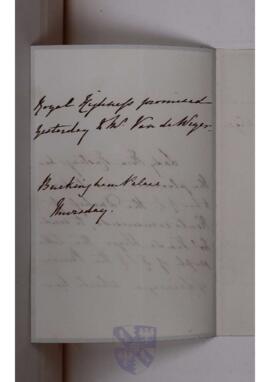 Royal Highness promised
yesterday to Mr Van de Weyer.
Buckingham Palace
Thursday.